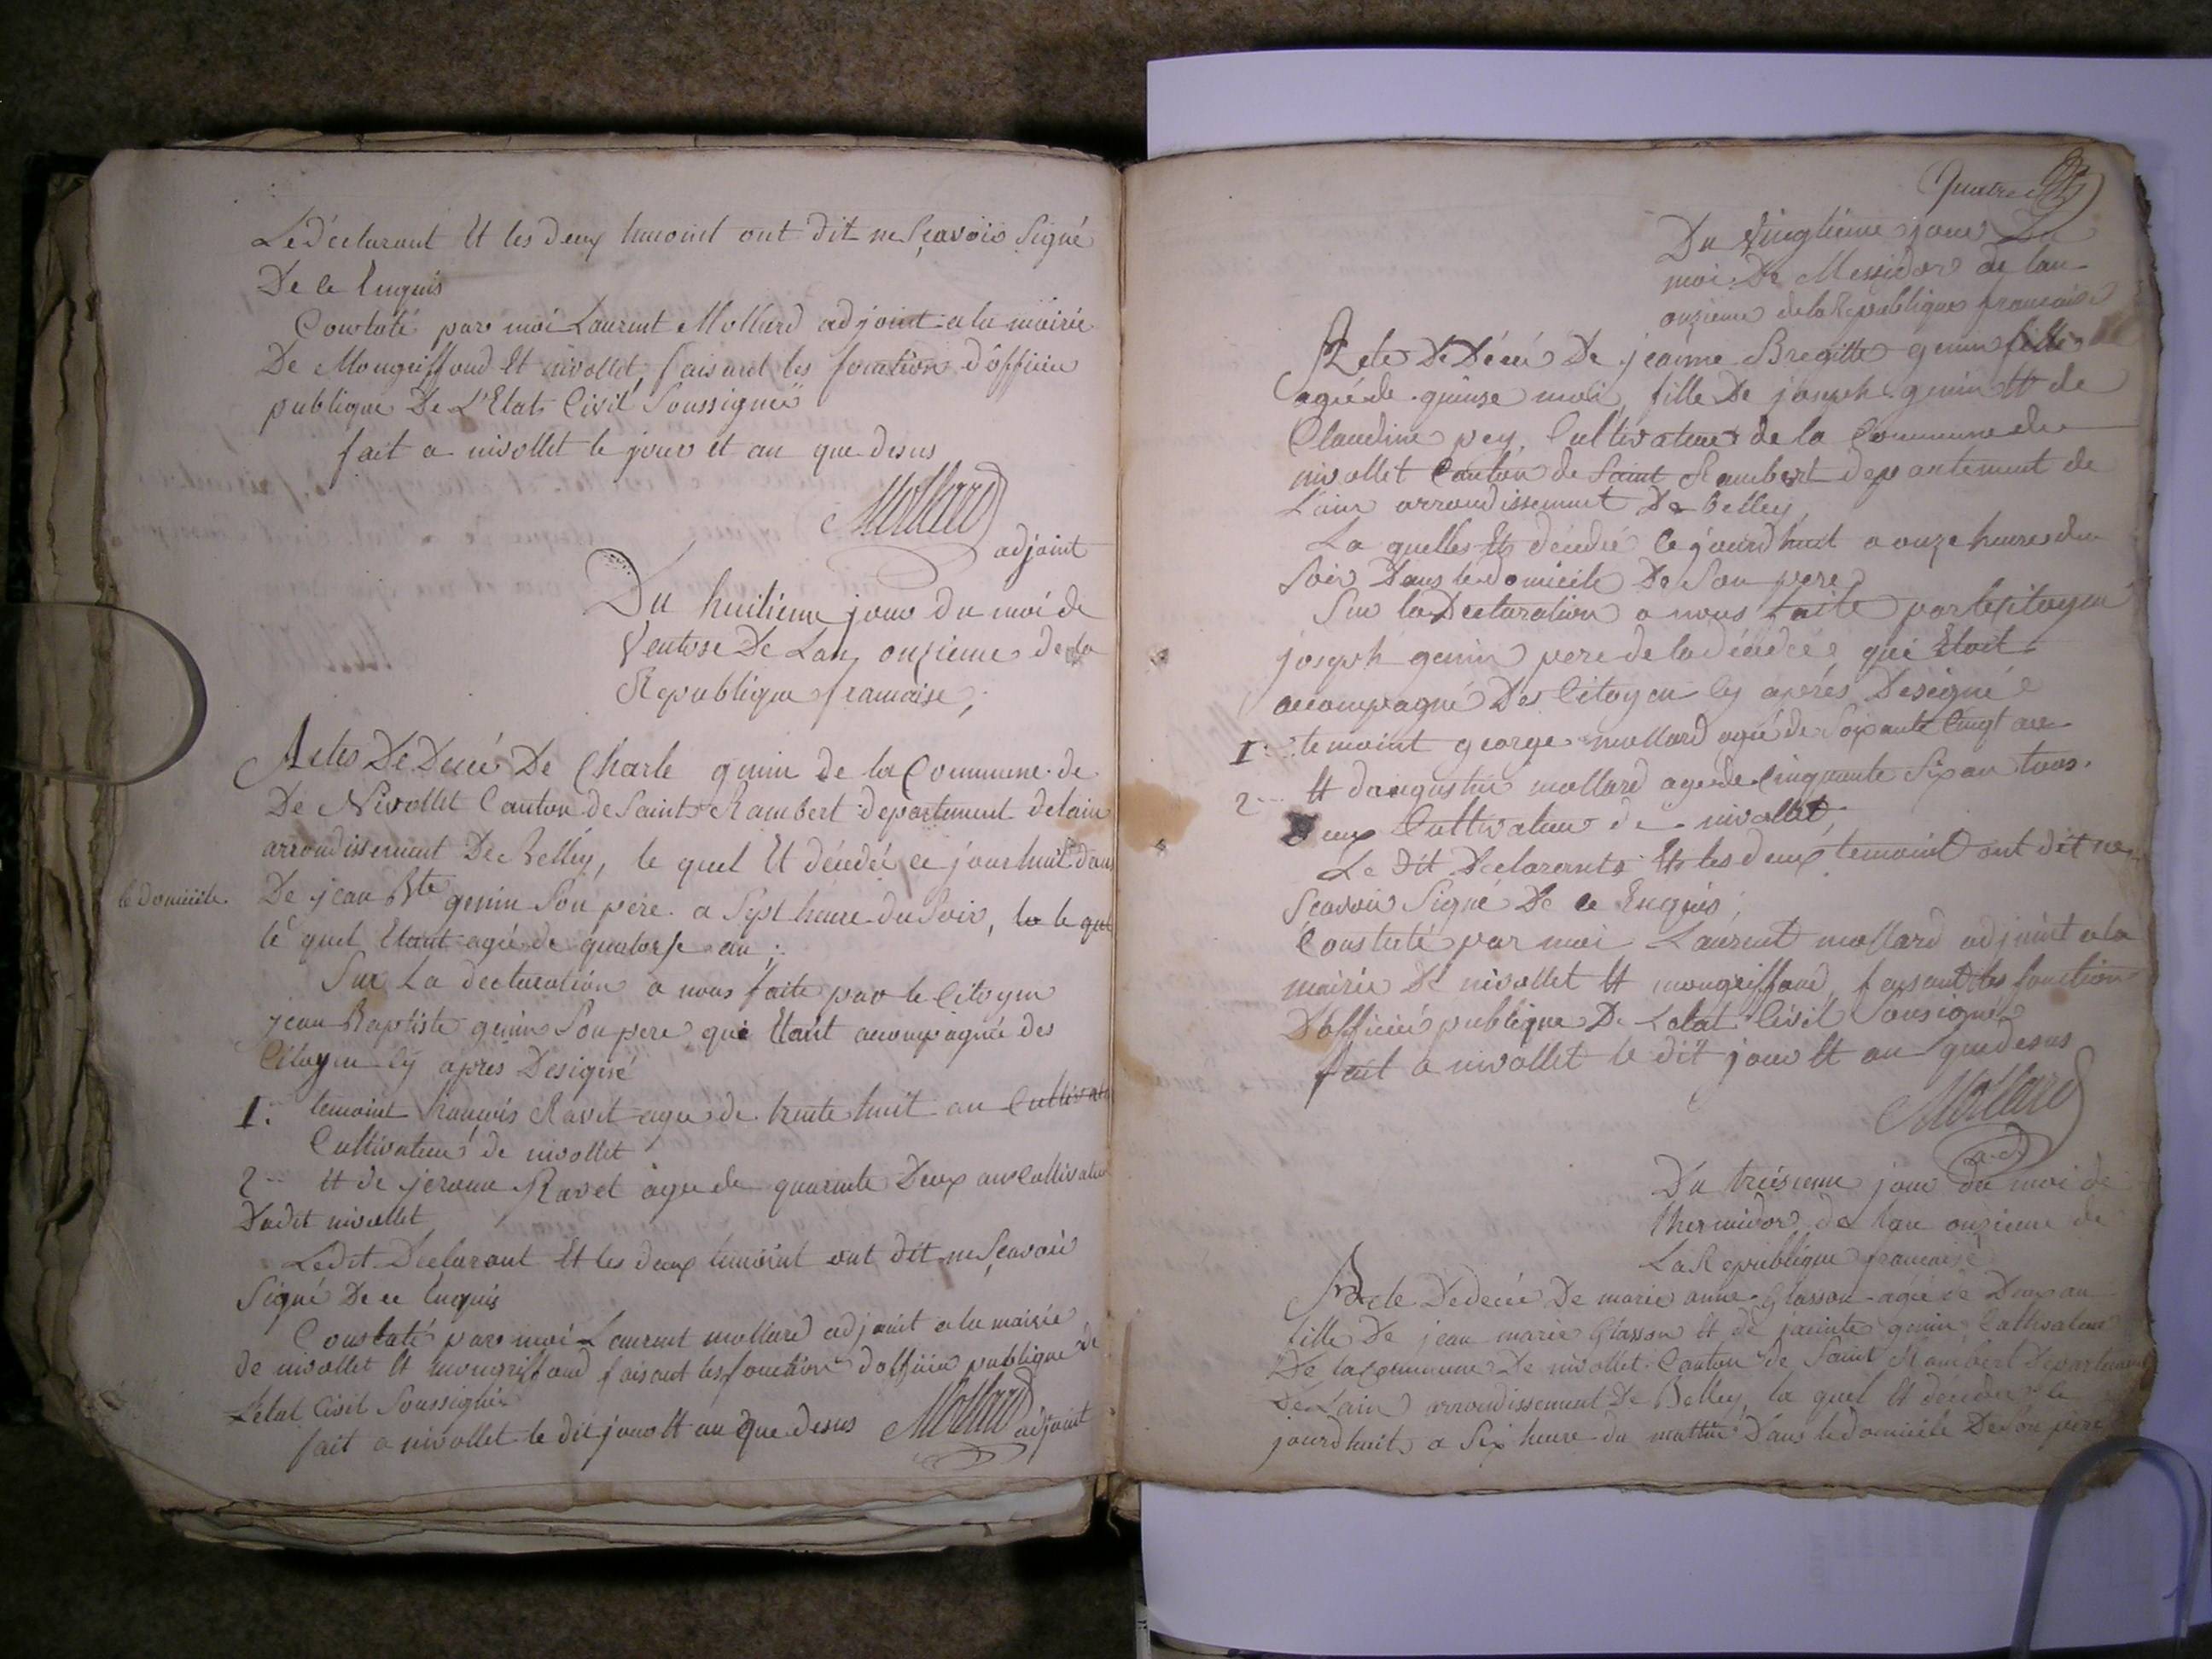 Le déclarant Et les deux temoint ont dit ne Sçavoir Signé
De ce Enquis
Constaté par moi Laurent Mollard adjoint a la mairie
De Mongriffond Et nivollet, faisant les fonction d'officié
publique De L'Etat Civil Soussigné
fait a nivollet le jour et an que desus
Mollard
adjoint
Du huitieme jour du moi de
Ventose De Lan onzieme de la
Republique francaise,
Actes De Decé De Charle genin de la Commune de
De Nivollet Canton de Saint Rambert departement delain
arrondissement De Belley, le quel Et décedé ce jourhuit dans
le domicile.
De jean Bte genin Son pere a Sept heure du Soir, le quel
le quel Etant agé de quatorse an ;
Sur La declaration a nous faite par le Citoyen
jean Baptiste genin Son pere qui Etant acompagné des
Citoyen Cy après Designé
1. temoint francois Ravet age de trente huit an
Cultivateur de nivollet
2 Et de jerome Ravet age de quarante Deux an Cultivateur
Dudit nivollet
Ledit Declarant Et les deux temoint ont dit ne Scavoir
Signé De ce Enquis
Constaté par moi Laurent mollard adjoint a la mairie
de nivollet Et mongriffond faisant les fonction dofficié publique de
Letat Civil Soussigné
fait a nivollet le dit jour Et an que desus Mollard adjoint
Quatre
Du Vingtieme jour Du
moi De Messidor de lan
onzieme de la Republique francaise
Acte De Décé De jeanne Bregitte genin fille
agé de quinse moi, fille De joseph genin Et de
Claudine pey, Cultivateur de la Commune de
nivollet Canton de Saint Rambert departement de
Lain arrondissement De Belley,
La quelles Et décedée Ce jourdhuit a onze heures du
Soir Dans le domicile De Son pere
Sur la Declaration a nous faite par le Citoyen
joseph genin pere de la décedée, qui Etoit
acompagné Des Citoyen Cy après Designé
1. temoint george mollard agé de Soixante Cinqt an
2 Et daugustin mollard age de Cinquante Six an tous
Deux Cultivateur de nivollet,
Le dit Declarents Et les deux temoint ont dit ne
Scavoir Signé De ce Enquis,
Constaté par moi Laurent mollard adjoint a la
mairie De nivollet Et mongriffond faisant les fonction
Dofficié publique De Letat Civil Sousigné
fait a nivollet le dit jour Et an que desus
Mollard
ad
Du treisieme jour du moi de
thermidor de lan onzieme de
La Republique francaise
Acte De decée De marie anne Glasson agée de Deux an
fille De jean marie Glasson Et de jacinte genin Cultivateur
De la commune De nivollet Canton de Saint Rambert Departement
De Lain arrondissement De Belley, la quel Et décedée le
jourdhuit a Six heure du mattin Dans le domicile De Son pere